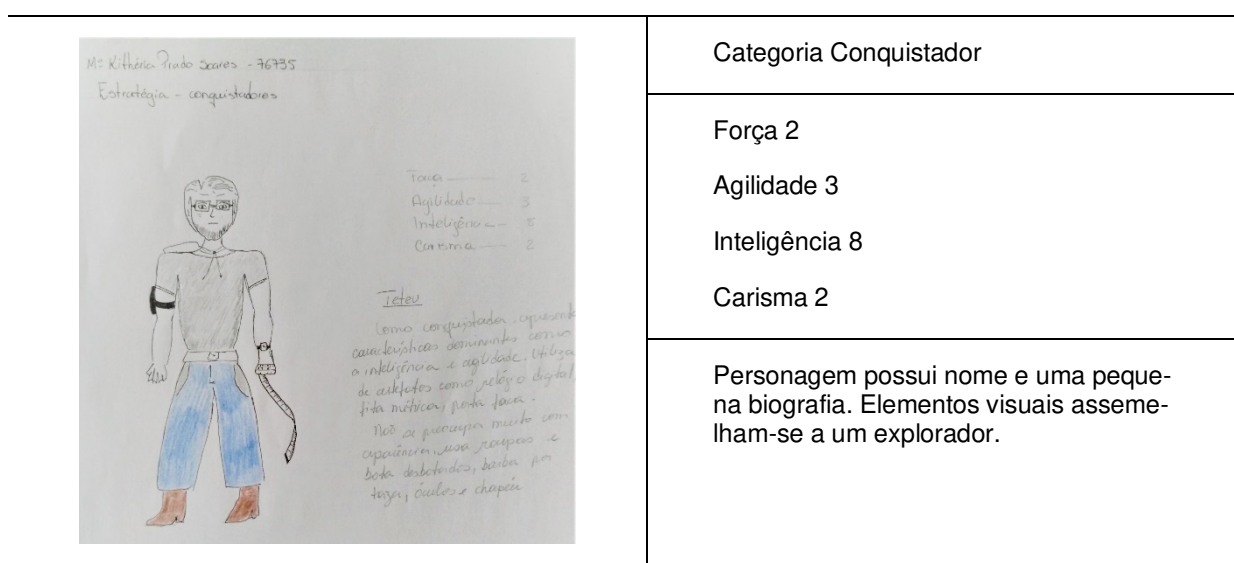 Mª Kithéria Prado Soares - 76735
Estratégia - conquistadores
Força 2
Agilidade 3
Inteligência 8
Carisma 2
Teteu
Como conquistador, apresenta
características dominantes como
a inteligência e agilidade. Utiliza
de artefatos como relógio digital,
fita métrica, porta faca.
Não se preocupa muito com
aparência, usa roupas e
bota desbotados, barba por
fazer, óculos e chapéu
Categoria Conquistador
Força 2
Agilidade 3
Inteligência 8
Carisma 2
Personagem possui nome e uma peque-
na biografia. Elementos visuais asseme-
lham-se a um explorador.